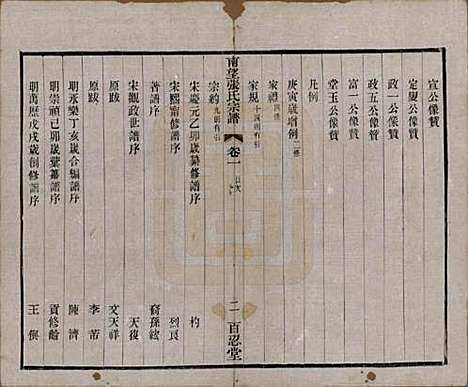 宣公像贊
定叟公像贊
政一公像贊
政五公像贊
富一公像贊
堂玉公像贊
凡例
庚寅歲增例 二條
家禮 四條
家規 十四則有引
宗約 九則有引
南望張氏宗譜 卷一 目次 二 百忍堂
宋慶元乙卯歲纂修譜序 杓
宋熙甯修譜序 烈良
舊譜序 裔孫絃
宋觀政世譜序 天復
原跋 文天祥
原跋 李芾
明永樂丁亥歲合編譜序 陳濟
明崇禎己卯歲彙纂譜序 貢修齡
明萬歷戊戌歲創修譜序 王僎